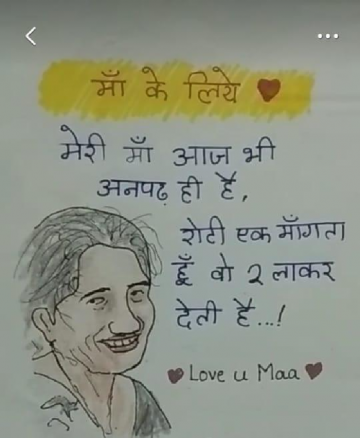 माँ के लिये
मेरी माँ आज भी
अनपढ़ ही है,
रोटी एक माँगता
हूँ वो 2 लाकर
देती है...!
Love u Maa